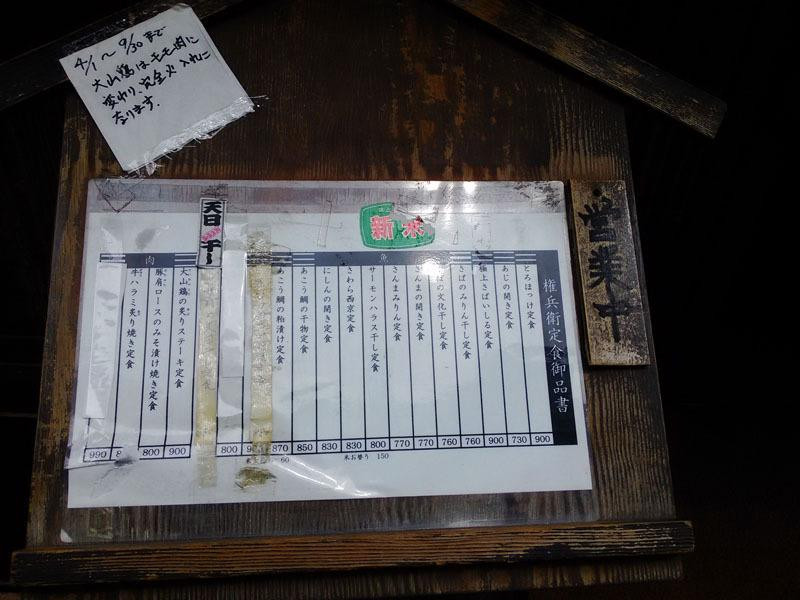 4/1〜9/30まで
大山鶏はモモ肉に
変わり、完全火入れに
なります。
営業中
新米
天日干し
権兵衛定食御品書
魚
とろほっけ定食 900
あじの開き定食 730
極上さばいしる定食 900
さばのみりん干し定食 760
さばの文化干し定食 760
さんまの開き定食 770
さんまみりん定食 770
サーモンハラス干し定食 800
さわら西京定食 830
にしんの開き定食 830
あこう鯛の干物定食 850
あこう鯛の粕漬け定食 870
800
肉
大山鶏の炙りステーキ定食 900
豚肩ロースのみそ漬け焼き定食 800
牛ハラミ炙り焼き定食
990
米お替り 150
60